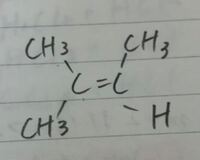 CH3 CH3
C=C
CH3 H